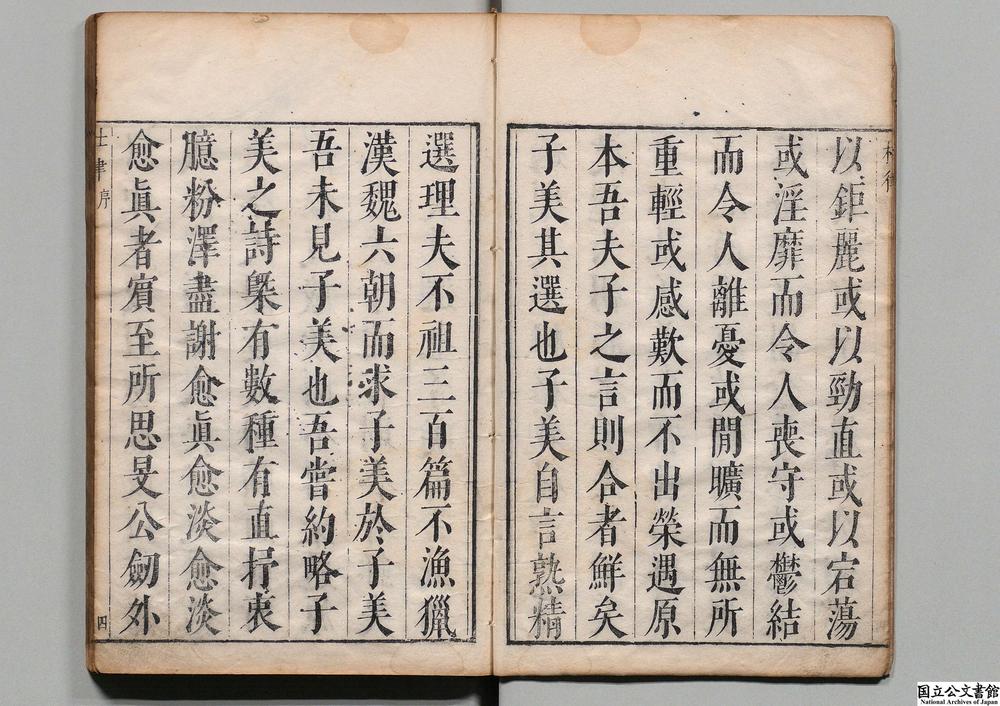 以鉅麗或以勁直或以宕蕩
或淫靡而令人喪守或鬱結
而令人離憂或閒曠而無所
重輕或感歎而不出榮遇原
本吾夫子之言則合者鮮矣
子美其選也子美自言熟精
選理夫不祖三百篇不漁獵
漢魏六朝而求子美於子美
吾未見子美也吾嘗約略子
美之詩槩有數種有直抒衷
臆粉澤盡謝愈眞愈淡愈淡
愈眞者賓至所思旻公劒外
七律序
四
国立公文書館
National Archives of Japan